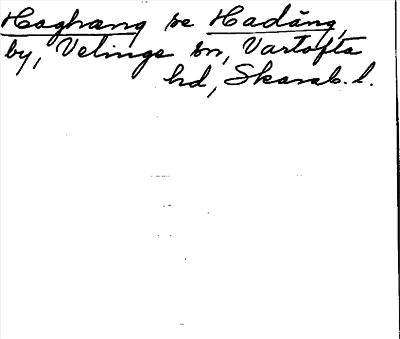 Haghæng se Hadäng,
by, Velinge sn, Vartofta
hd, Skarab. l.